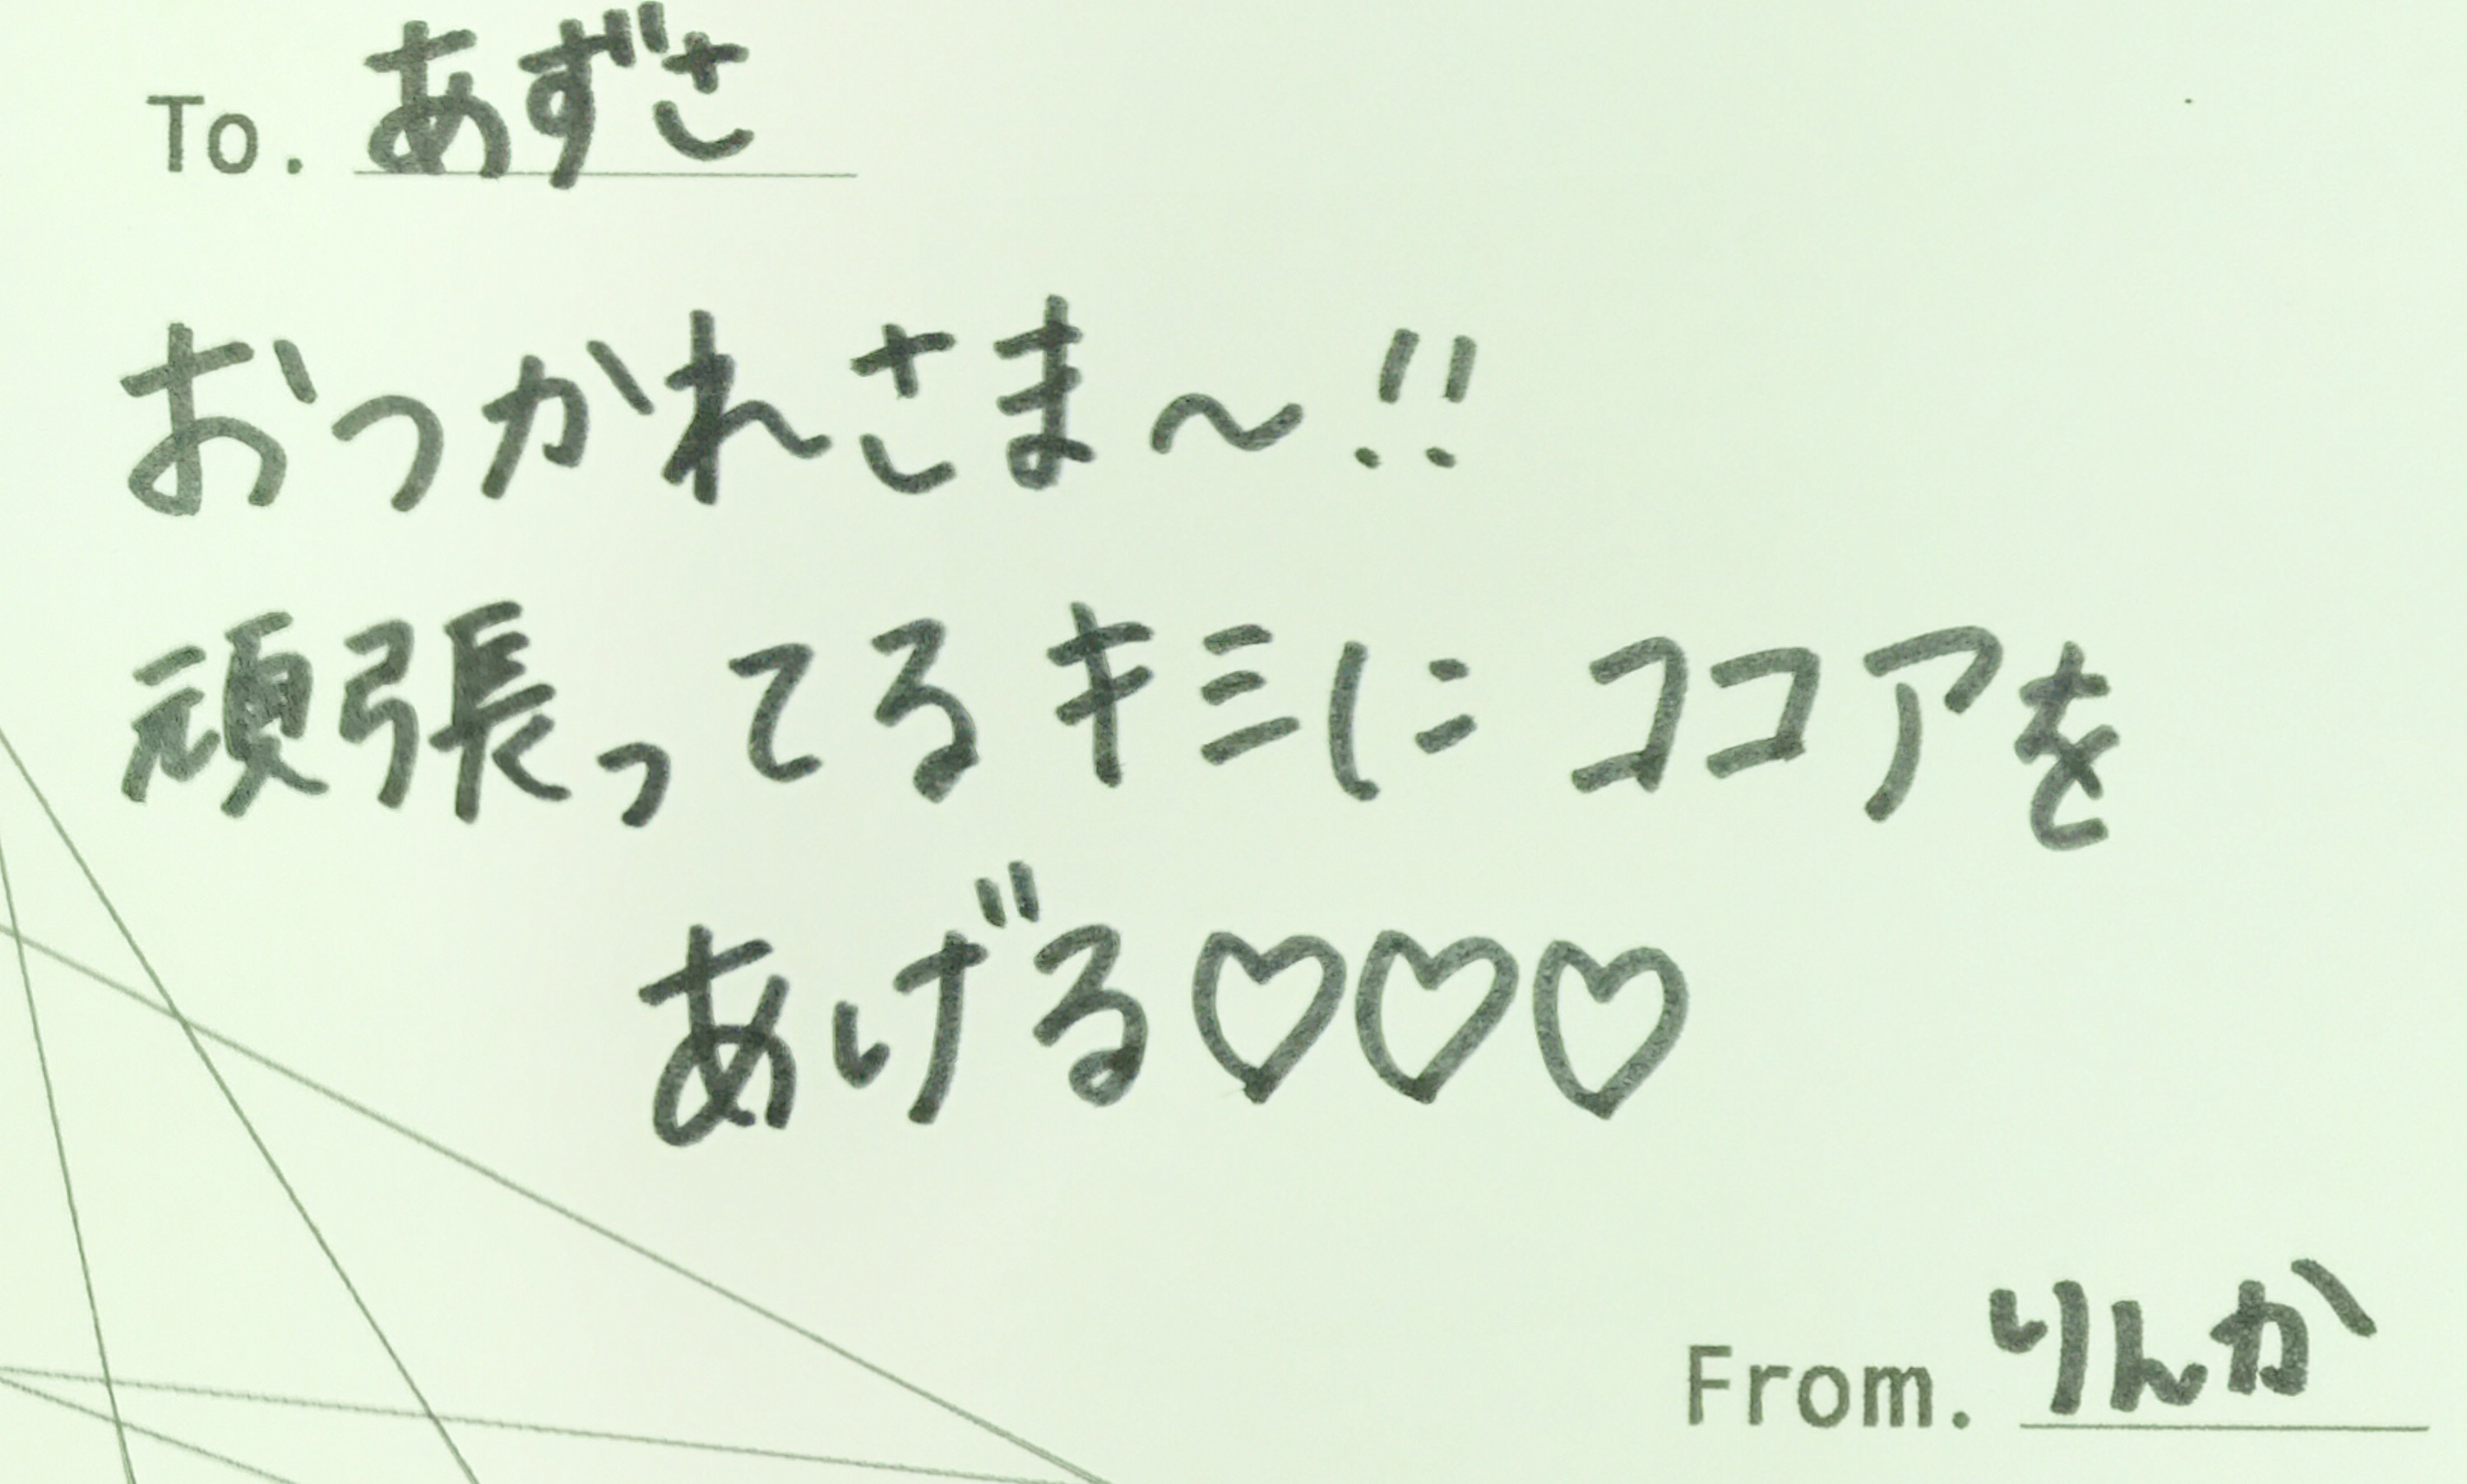 To. あずさ
おつかれさま～!!
頑張ってるキミにココアを
あげる♡♡♡
From. りんか